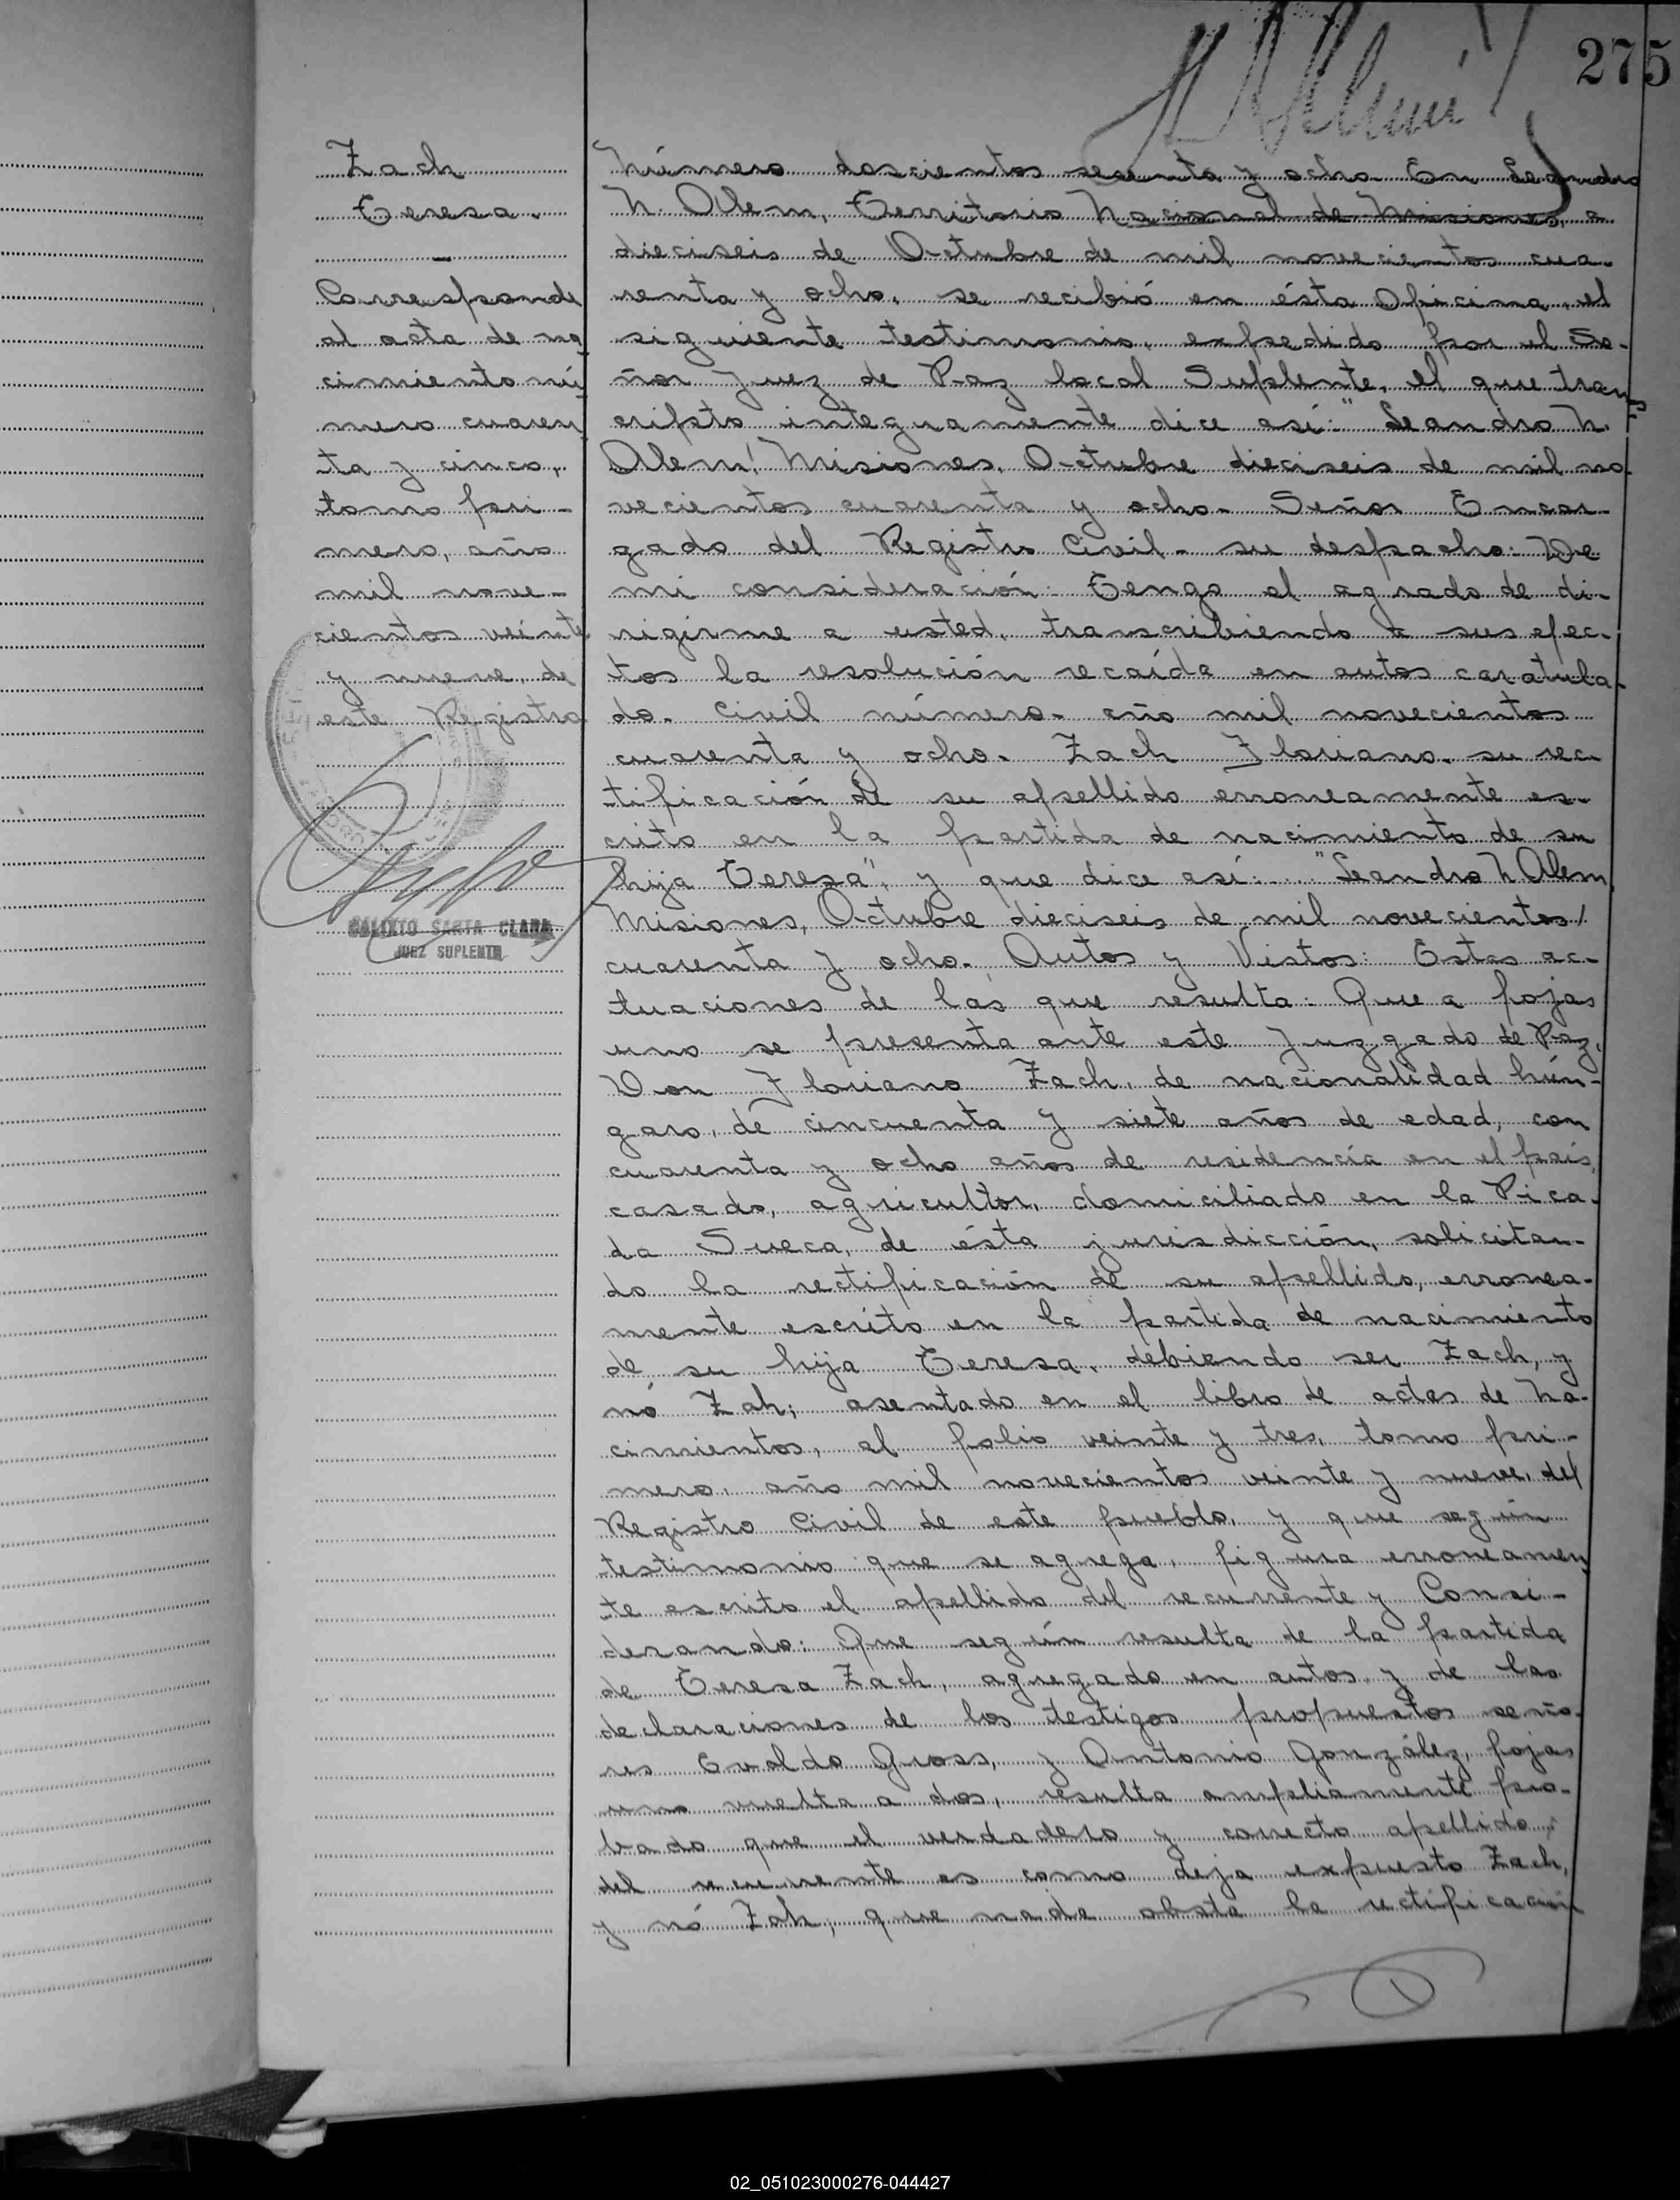 275
Zach
Teresa.
Corresponde
al acta de na
cimiento nú
mero cuaren
ta y cinco,
tomo pri-
mero, año
mil nove-
cientos veinte
y nueve, de
este Registro
CALIXTO SANTA CLARA
JUEZ SUPLENTE
Número doscientos sesenta y ocho. En Leandro
N. Alem, Territorio Nacional de Misiones, a
dieciseis de Octubre de mil novecientos cua-
renta y ocho, se recibió en ésta Oficina, el
siguiente testimonio, expedido por el Se-
ñor Juez de Paz local Suplente, el que trans
cripto integramente dice así: "Leandro N.
Alem, Misiones, Octubre dieciseis de mil no-
vecientos cuarenta y ocho- Señor Encar-
gado del Registro Civil- su despacho: De
mi consideración: Tengo el agrado de di-
rigirme a usted, transcribiendo a sus efec-
tos la resolución recaída en autos caratula-
do- Civil número- año mil novecientos
cuarenta y ocho- Zach Floriano- su rec
tificación de su apellido erroneamente es-
crito en la partida de nacimiento de su
hija Teresa", y que dice así: "Leandro N Alem
Misiones, Octubre dieciseis de mil novecientos/
cuarenta y ocho. Autos y Vistos: Estas ac-
tuaciones de las que resulta: Que a fojas
uno se presenta ante este Juzgado de Paz,
Don Floriano Zach, de nacionalidad hún-
garo, de cincuenta y siete años de edad, con
cuarenta y ocho años de residencia en el país,
casado, agricultor, domiciliado en la Pica-
da Sueca, de ésta jurisdicción, solicitan-
do la rectificación de su apellido, erronea-
mente escrito en la partida de nacimiento
de su hija Teresa, debiendo ser Zach, y
nó Zah; asentado en el libro de actas de Na-
cimientos, al folio veinte y tres, tomo pri-
mero, año mil novecientos veinte y nueve, del
Registro Civil de este pueblo, y que según
testimonio que se agrega, figura erroneamen
te escrito el apellido del recurrente y Consi-
derando: Que según resulta de la partida
de Teresa Zach, agregado en autos y de las
declaraciones de los testigos propuestos seño-
res Evaldo Gross, y Antonio González, fojas
uno vuelta a dos, resulta ampliamente pro-
bado que el verdadero y correcto apellido
del recurrente es como deja expuesto Zach,
y nó Zah; que nada obsta la rectificación
02_051023000276-044427